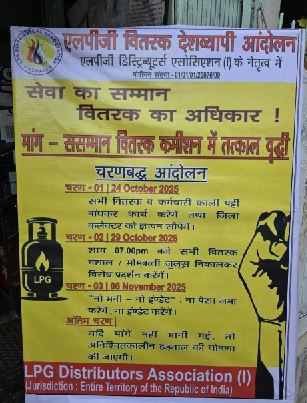 एलपीजी वितरक देशव्यापी आंदोलन
एलपीजी डिस्ट्रिब्यूटर्स एसोसिएशन (I) के नेतृत्व में
सेवा का सम्मान
वितरक का अधिकार !
मांग – ससम्मान वितरक कमीशन में तत्काल वृद्धी
चरणबद्ध आंदोलन
चरण - 01 | 24 October 2025
सभी वितरक व कर्मचारी काली पट्टी
बांधकर कार्य करेंगे तथा जिला
कलेक्टर को ज्ञापन सौंपेंगे।
चरण - 02 | 29 October 2025
शाम 07.00pm बजे सभी वितरक
मशाल / मोमबत्ती जुलूस निकालकर
विरोध प्रदर्शन करेंगे।
चरण - 03 | 06 November 2025
"नो मनी – नो इंडेंट" . ना पैसा जमा
करेंगे, ना इंडेंट करेंगे।
अंतिम चरण |
यदि मांगें नहीं मानी गई, तो
अनिश्चितकालीन हड़ताल की घोषणा
की जाएगी।
LPG
LPG Distributors Association (I)
(Jurisdiction : Entire Territory of the Republic of India)